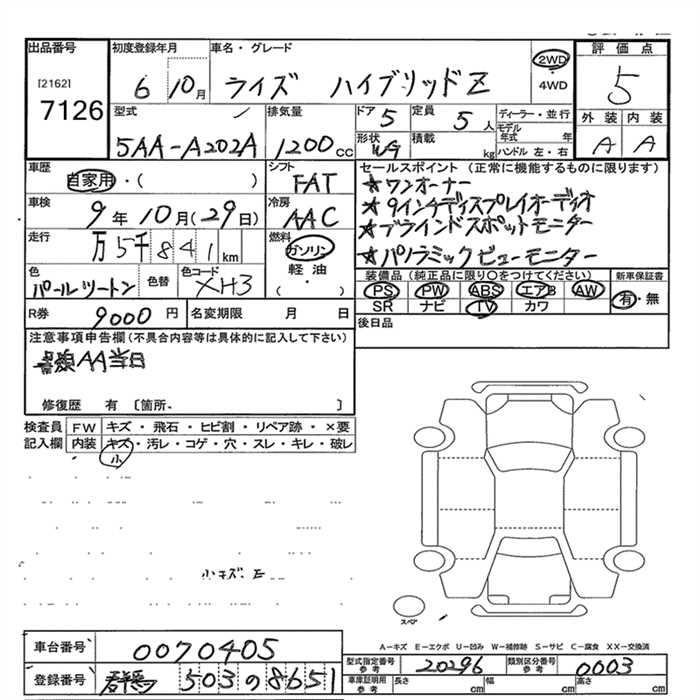 出品番号
[2162]
7126
初度登録年月
6 10月
車名・グレード
ライズ ハイブリッドZ
2WD
・
4WD
評価点
5
外装 内装
A A
型式
5AA-A202A
排気量
1200cc
ドア
5
定員
5人
形状
積載
kg
ディーラー・並行
モデル年式 年
ハンドル 左・右
車歴
自家用・( )
シフト
FAT
セールスポイント (正常に機能するものに限ります)
★ワンオーナー
★9インチディスプレイオーディオ
★ブラインドスポットモニター
★パノラミックビューモニター
車検
9年10月(29日)
冷房
AAC
走行
万5千841km
燃料
ガソリン
軽油
( )
色
パールツートン
色替
色コード
XH3
装備品 (純正品に限り○をつけてください)
PS PW ABS エアB AW
SR ナビ TV カワ
新車保証書
有・無
R券
9000円
名変期限 月 日
後日品
注意事項申告欄(不具合内容等は具体的に記入して下さい)
AA当日
修復歴 有 〔箇所. 〕
検査員記入欄
FW キズ・飛石・ヒビ割・リペア跡・×要
内装 キズ・汚レ・コゲ・穴・スレ・キレ・破レ
小
小キズ. E
スペア
A-キズ E-エクボ U-凹み W-補修跡 S-サビ C-腐食 XX-交換済
車台番号
0070405
登録番号
群馬 503の8651
型式指定番号
参考
20296
類別区分番号
参考
0003
車庫証明用
参考
長さ cm
幅 cm
高さ cm